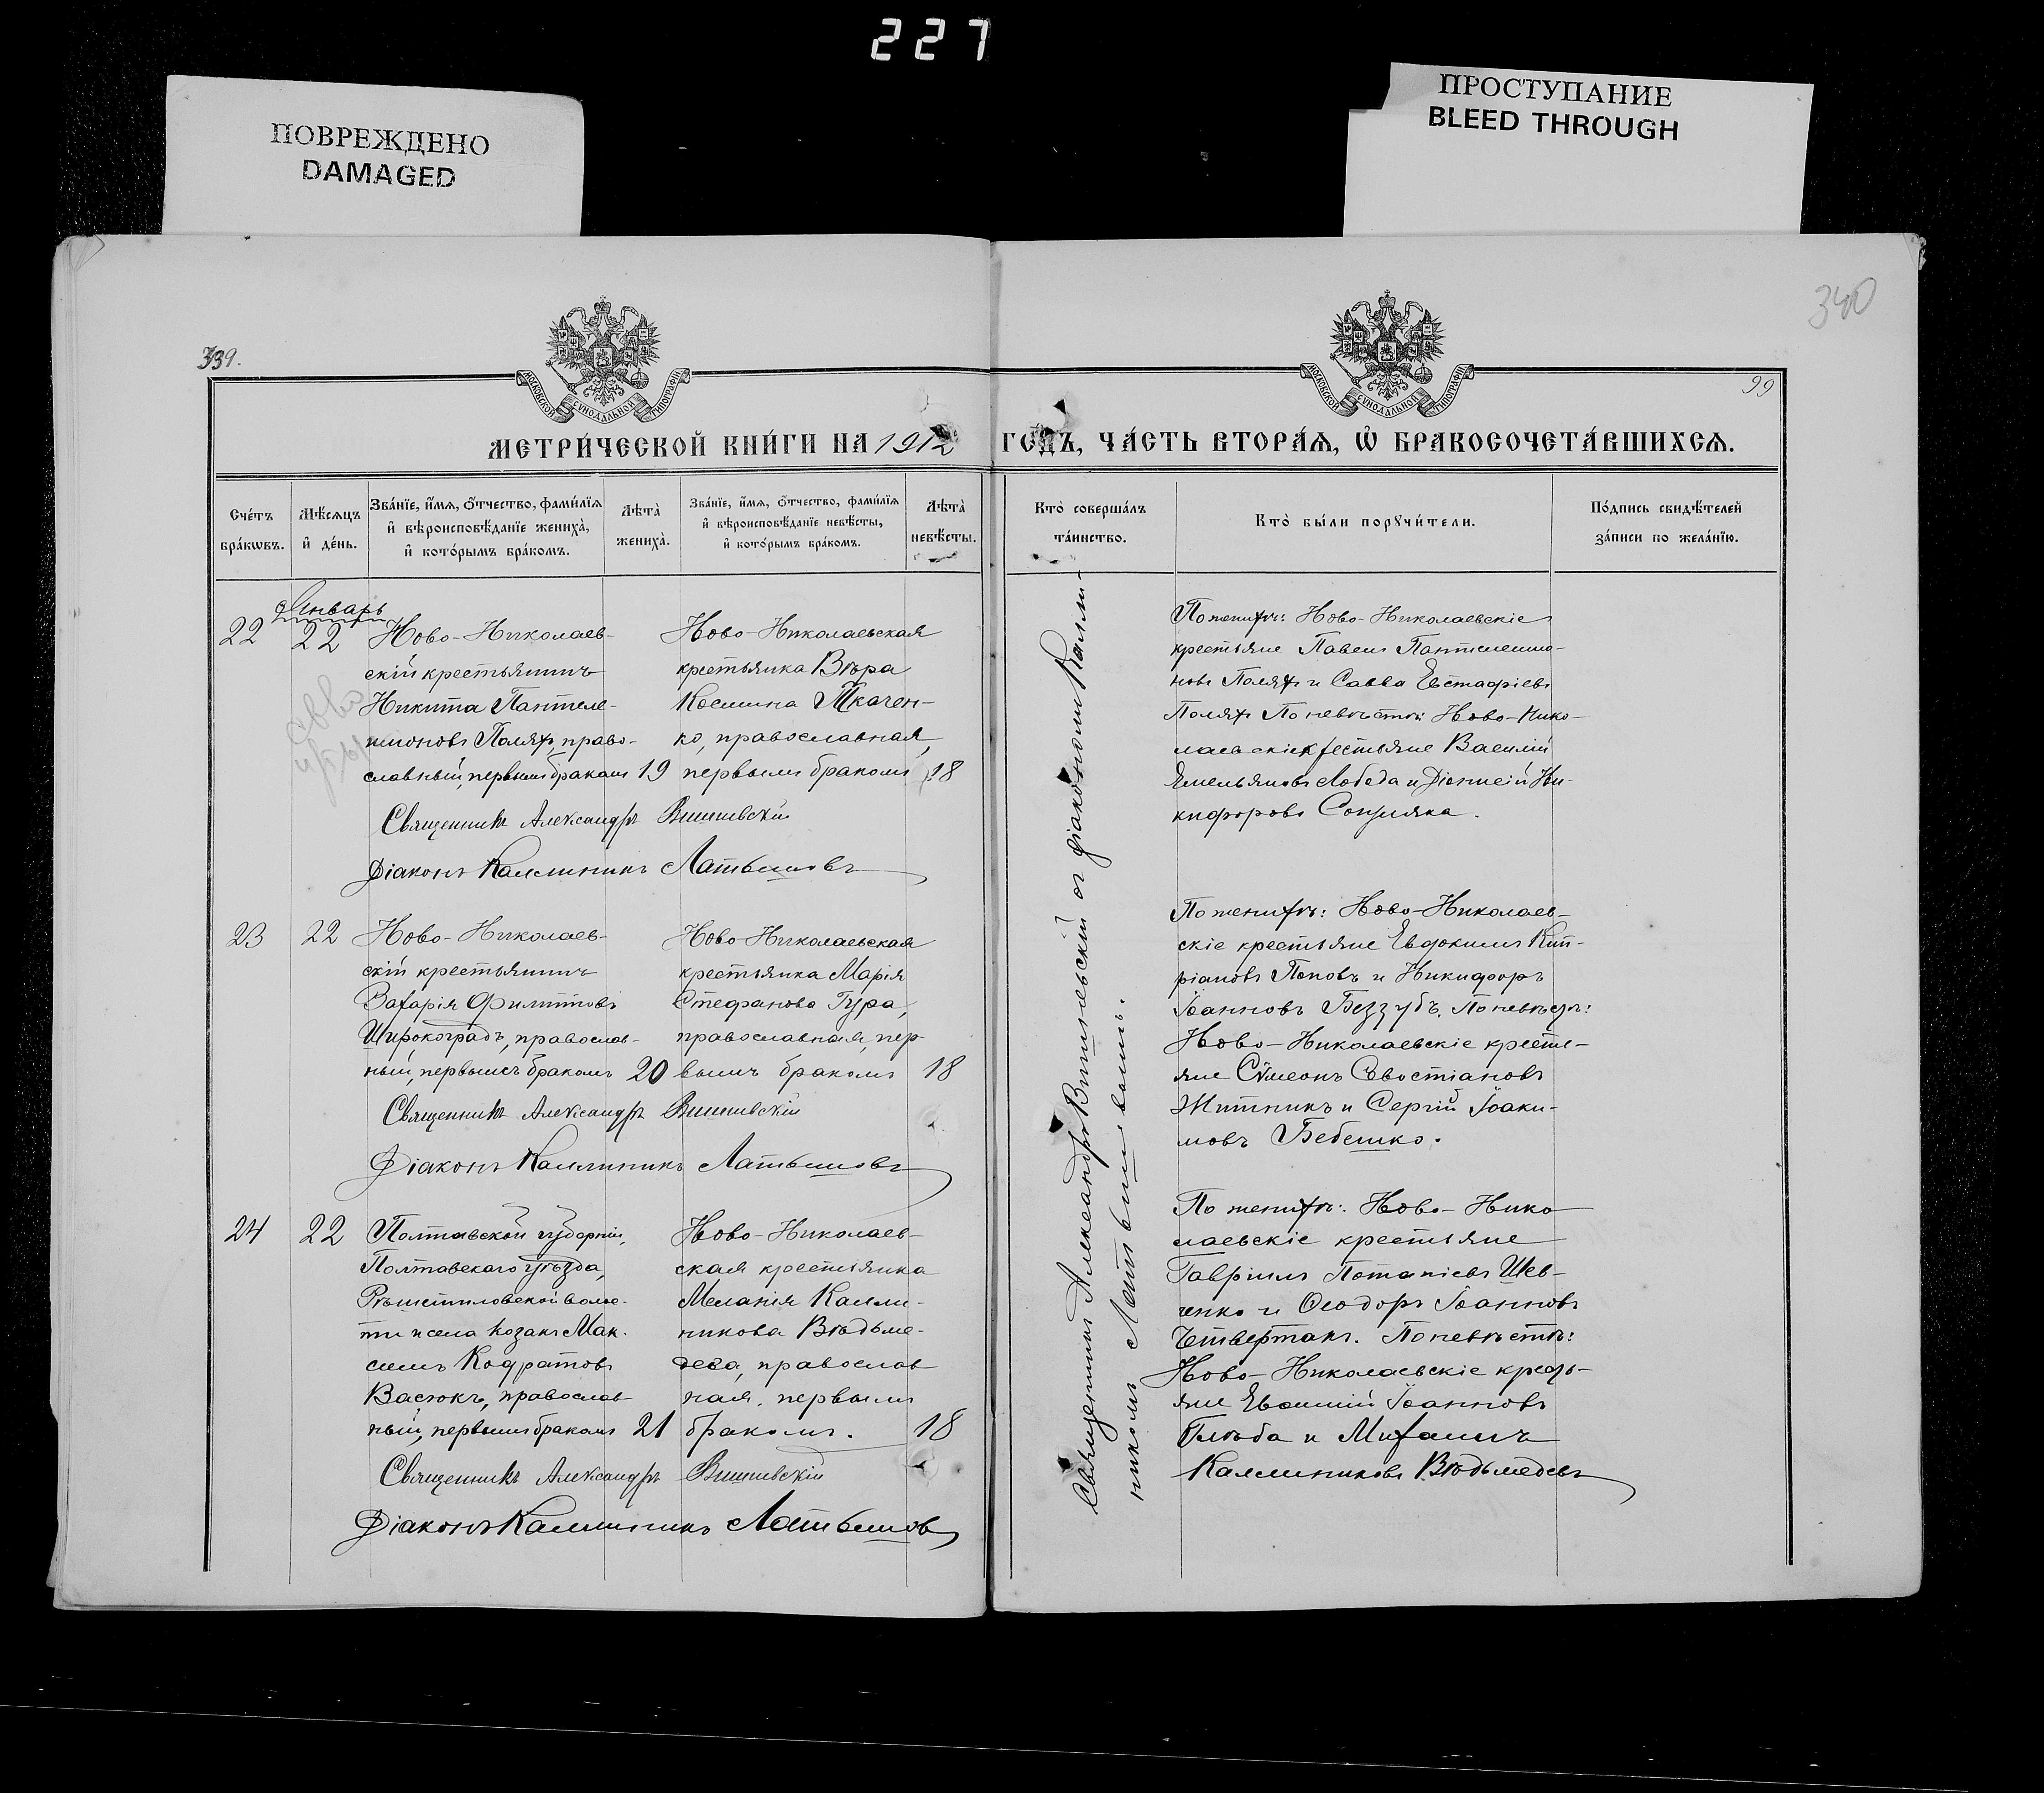 227
ПОВРЕЖДЕНО
DAMAGED
ПРОСТУПАНИЕ
BLEED THROUGH
340
339.
99
МОСКОВСКОЙ СѴНОДАЛЬНОЙ ТИПОГРАФІИ
МОСКОВСКОЙ СѴНОДАЛЬНОЙ ТИПОГРАФІИ
МЕТРИ́ЧЕСКОЙ КНИ́ГИ НА 1912 ГОДЪ, ЧА́СТЬ ВТОРА́Ѧ, Ѽ БРАКОСОЧЕТА́ВШИХСѦ.
Сче́тъ бра́кѡвъ.
Мѣ́сѧцъ и҆ де́нь.
Зва́нїе, и҆́мѧ, ѻ҆́тчество, фами́лїѧ и҆ вѣроисповѣ́данїе жениха̀, и҆ кото́рымъ бра́комъ.
Лѣта̀ жениха̀.
Зва́нїе, и҆́мѧ, ѻ҆́тчество, фами́лїѧ и҆ вѣроисповѣ́данїе невѣ́сты, и҆ кото́рымъ бра́комъ.
Лѣта̀ невѣ́сты.
Кто̀ соверша́лъ та́инство.
Кто̀ бы́ли порꙋчи́тели.
По́дпись свидѣ́телей за́писи по жела́нїю.
Январь
22
22
Ново-Николаев-
скій крестьянинъ
Никита Пантеле-
имоновъ Полях, право-
славный, первымъ бракомъ 19
Ново-Николаевская
крестьянка Вѣра
Косьмина Ткачен-
ко, православная,
первымъ бракомъ 18
Священникъ Александръ Вишневскій
Діаконъ Каллиникъ Латышовъ
По женихѣ: Ново-Николаевскіе
крестьяне Павелъ Пантелеимо-
новъ Полях и Савва Евстафіевъ
Полях По невѣстѣ: Ново-Нико-
лаевскіе крестьяне Василій
Емельяновъ Лобода и Діонисій Ни-
кифоровъ
23
22
Ново-Николаев-
скій крестьянинъ
Захарія Филипповъ
Широкоградъ, православ-
ный, первымъ бракомъ 20
Ново-Николаевская
крестьянка Марія
Стефанова Гура,
православная, пер
вымъ бракомъ 18
Священникъ Александръ Вишневскій
Діаконъ Каллиникъ Латышовъ
По женихѣ: Ново-Николаев-
скіе крестьяне Евдокимъ Кип-
ріановъ Поповъ и Никифоръ
Іоанновъ Беззубъ. По невѣстѣ:
Ново-Николаевскіе кресть-
яне Сѵмеонъ Севостіановъ
Житникъ и Сергій Іоаки-
мовъ Бебешко.
24
22
Полтавской губерніи,
Полтавскаго уѣзда,
Рѣшетиловской волос-
ти и села козакъ Мак-
симъ Кодратовъ
Васюкъ, православ-
ный, первымъ бракомъ 21
Ново-Николаев-
ская крестьянка
Меланія Калли-
никова Вѣдьме-
дева, православ
ная, первымъ
бракомъ. 18
Священникъ Александръ Вишневскій
Діаконъ Каллиникъ Латышовъ
По женихѣ: Ново-Нико
лаевскіе крестьяне
Гавріилъ Потапіевъ Шев-
ченко и Ѳеодоръ Іоанновъ
Четвертакъ. По невѣстѣ:
Ново-Николаевскіе кресть-
яне Евѳимій Іоанновъ
Глѣба и Михаилъ
Каллиниковъ Вѣдьмедевъ
Священникъ Александръ Вишневскій съ діакономъ Калли-
никомъ Латышовымъ.